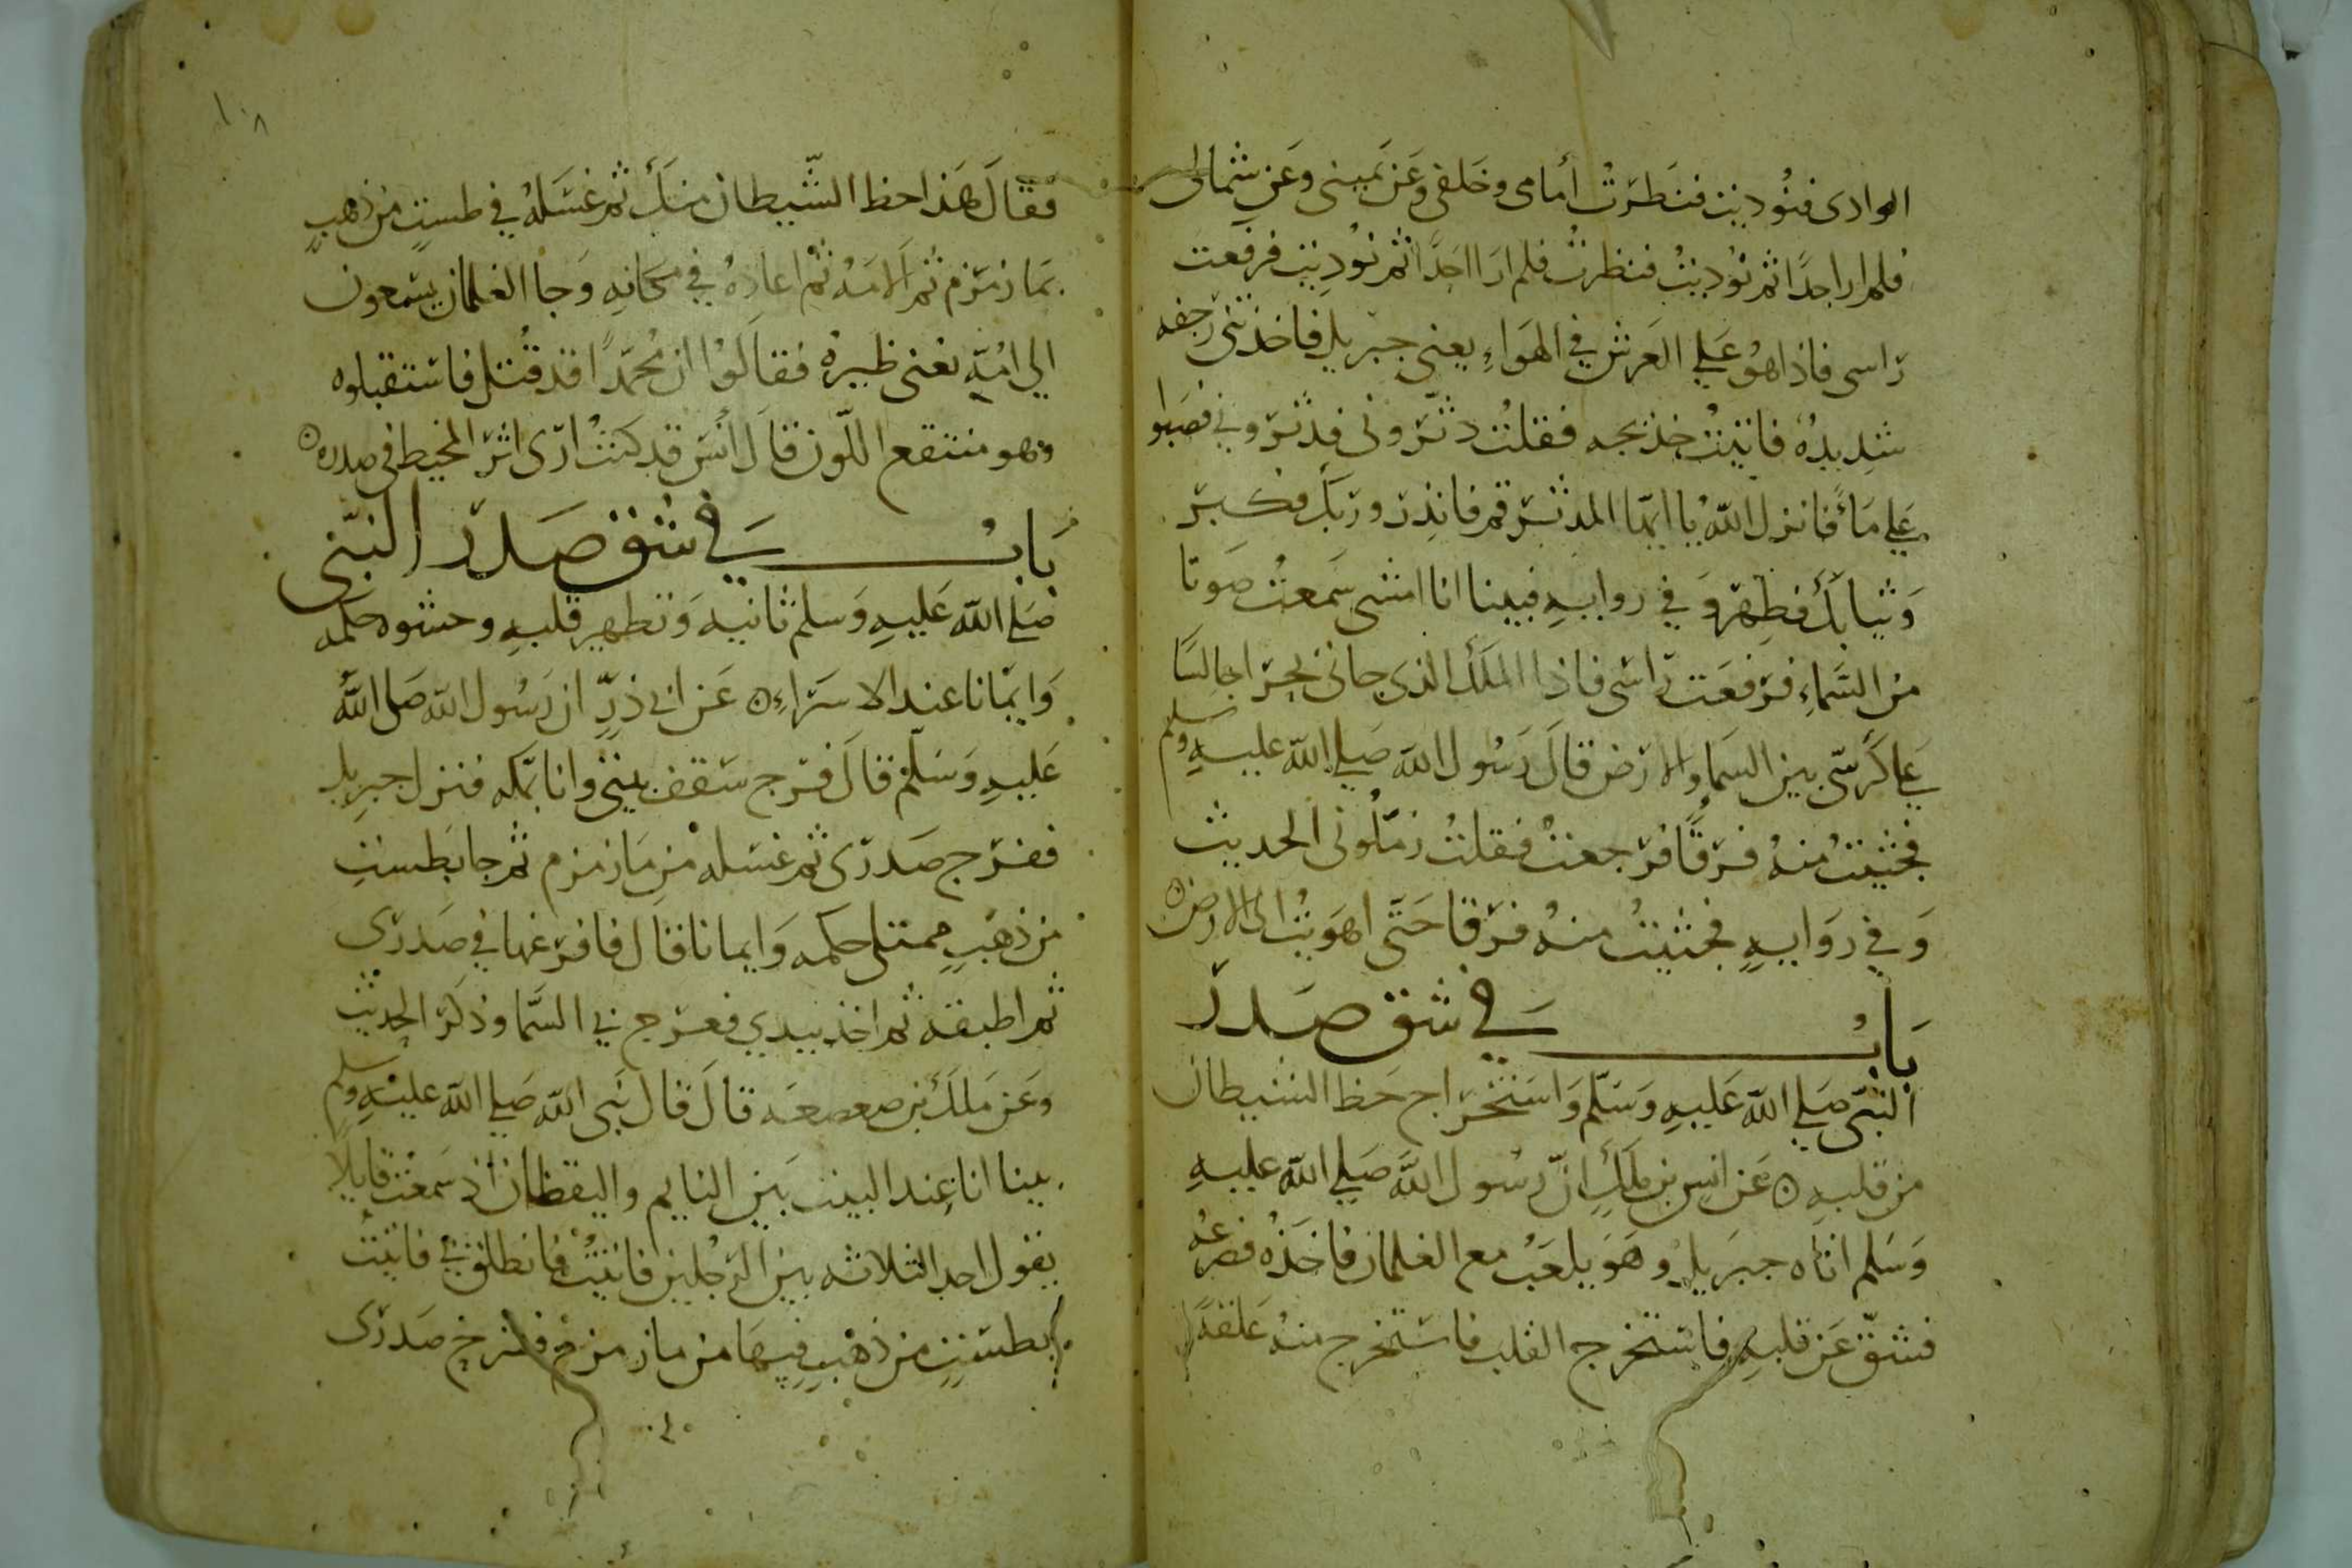 الوادى فنُوديت فنَظَرتُ أمامى وخَلفى وعَن يَمينى وعَن شمالى
فلم ار احدًا ثم نُوديتُ فنظرتُ فلم ارَ احَدًا ثم نُودِيت فرفعت
رَاسى فاذا هُو عَلي العَرش في الهَواءِ يعنى جبريل فاخذتنى رَجفه
شَدِيدهُ فاتيتُ خديجه فقلتُ دثّرونى فدثّرُونِي فصَبّوا
عَلي مَاًءً فانزل اللّهُ يا ايهّا المدثّر قم فانذِر وربّك فكبّر
وَثيابَكَ فطهِّر وَفي روايهٍ فبينا انا امشى سَمعتُ صَوتا
من السَّماءِ فرَفعَت رَاسى فاذا المَلَك الذى جانى بِحِرَا جالسًا
عَلي كرسّى بين السَمَا والارَض قالَ رَسُول اللّه صَلي اللّه عليهِ وسلم
فجثيتُ منهُ فَرَقًا فرَجعتُ فقلتُ زمّلُونى الحديث
وَفي رِوَايهٍ فجثيتُ منهُ فرَقا حَتَّى اهوَيتُ الى الارض
بَابُ في شق صَدرَ
النبّى صَلي اللّه عَليهِ وَسَلّم وَاستخرَاج حَظ الشيطان
من قلبهِ عَن انسِ بن ملكٍ انّ رسُول اللّه صَلي اللّه عليهِ
وَسَلم اتاه جبرَيل وهَوَ يلعَبُ مع الغلمان فاخَذُه فصَرعُه
فشقّ عَن قلبهِ فاستخرج القلب فاستخرج منهُ عَلقهً
١٠٨
فقالَ هَذا حظ الشّيطان منكَ ثم غسَلهُ في طستٍ من ذهبٍ
بمَا زمَزم ثم لاَمَهُ ثم اعادهُ في مَكانهِ وَجا الغلمان يسَعون
الي امّهِ يعنى ظيرهُ فقالُوا ان مُحمّدًا قد قُتل فاستقبلوه
وهو منتقع اللّون قالَ أنسَ قد كنتُ ارَى اثَر المخيط فى صدره
بَابُ في شق صَدرَ النبّى
صَلي اللّه عَليهِ وَسلم ثانيه وَتطهيرِ قلبهِ وحشوه حكمه
وَايمانا عند الاسَراءِ عَن ابي ذرٍّ ان رَسُول اللّه صَلى اللّهُ
عَليهِ وَسَلّم قالَ فرّج سَقف بيتى وانا بمكه فنزل جبريل
ففرَج صَدرَى ثم غسَله مِن مَا زمزم ثم جا بَطستٍ
من ذهَبٍ ممتلى حكمه وَايمانا قال فافرَغها في صَدرَى
ثم اطبقه ثم اخذ بيدي فعَرج بي الى السَّما وذكَر الحديث
وعَن مَلك بن صعصعَه قالَ قال نَبى اللّه صَلي اللّه عليهِ وسلم
بينا انا عِند البيت بَين النايم واليقظان اذ سَمعتُ قايلا
يقول احد الثلاثه بين الرّجُلين فاتيتُ فانطلق بي فاتيت
بطستٍ من ذهَبٍ فيها من ما زمزم فشرح صَدرَى